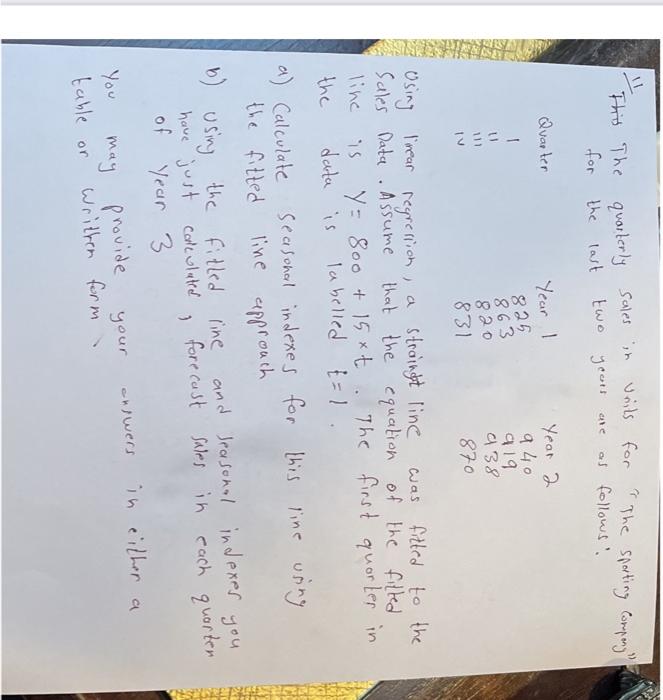 11 The quarterly sales in units for "The sporting company"
for the last two years are as follows:
Quarter Year 1 Year 2
I 825 940
II 863 919
III 820 938
IV 831 870
Using linear regression, a straight line was fitted to the
Sales Data. Assume that the equation of the fitted
line is Y = 800 + 15 x t. The first quarter in
the data is labelled t=1.
a) Calculate seasonal indexes for this line using
the fitted line approach
b) Using the fitted line and seasonal indexes you
have just calculated, forecast sales in each quarter
of Year 3
You may provide your answers in either a
table or written form.